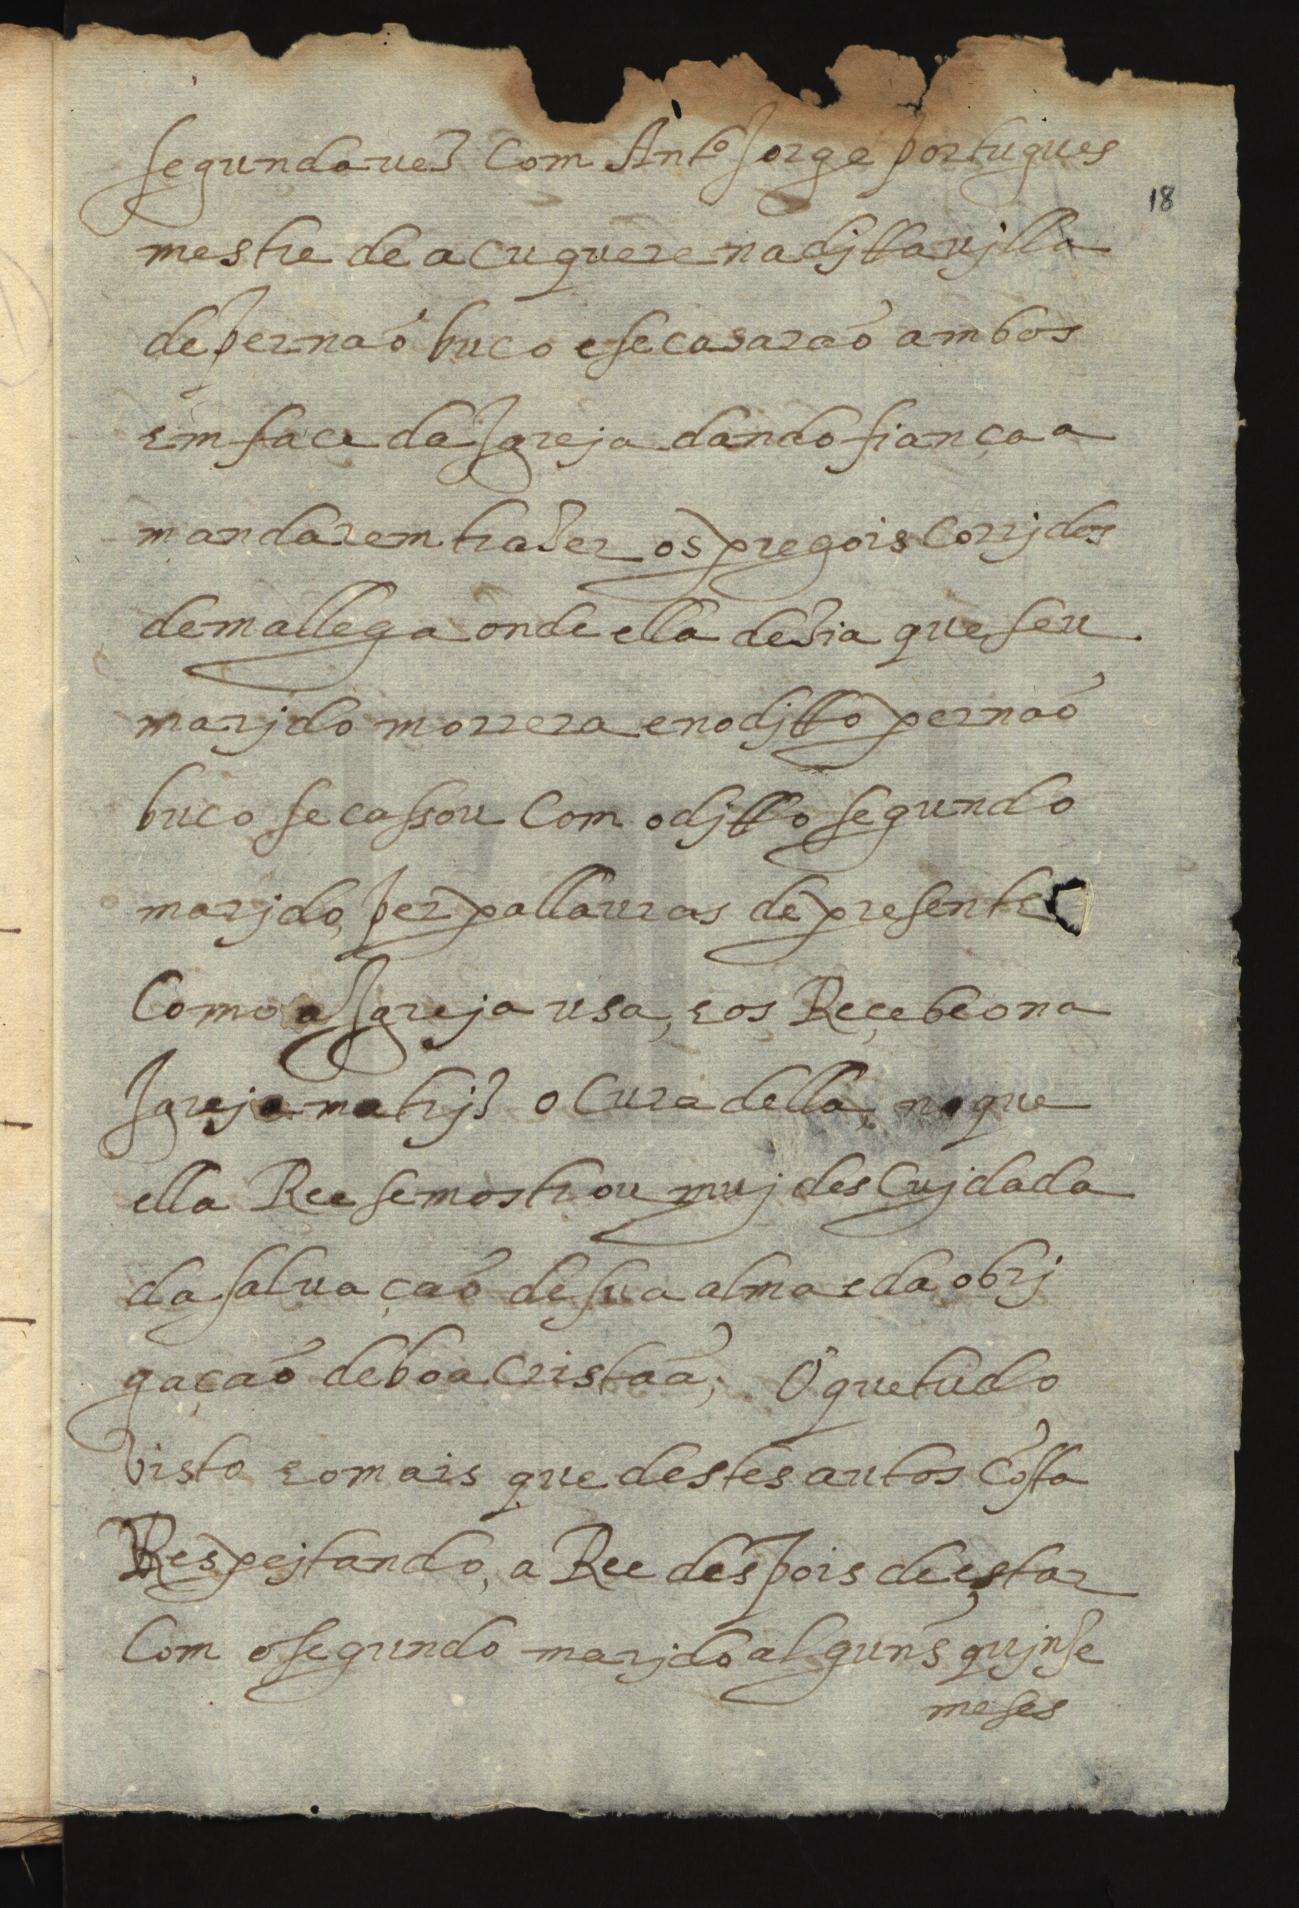 segunda ues Com Antº Jorge portugues
18
mestre de acuquere na djtta ujlla
de pernaõ buco e se casaraõ ambos
em face da Jgreja dando fianca a
mandarem traser os pregois Corrjdos
de mallega onde ella desia que seu
marjdo morrera e no djtto pernaõ
buco se cassou Com o djtto segundo
marjdo, per pallauras de presente
Como a Jgreja usa, e os Reçebeo na
Jgreja matrjs o Cura della, no que
ella Ree se mostrou muj desCujdada
da saluaçaõ de sua alma e da obrj
gaçaõ de boa Cristaã; O que tudo
visto e o mais que destes autos Cõsta
Respejtando, a Ree despois de estar
Com o segundo marjdo alguns qujnse
meses